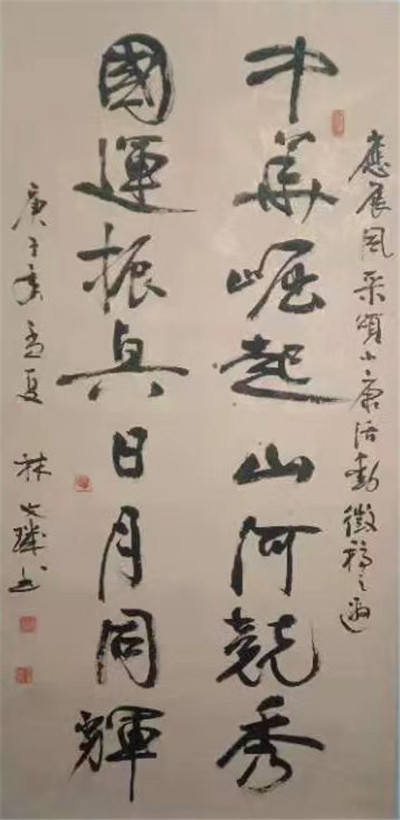 應展風采頌小康活動徵稿之邀
中華崛起山河競秀
國運振興日月同輝
庚子年孟夏 林文書